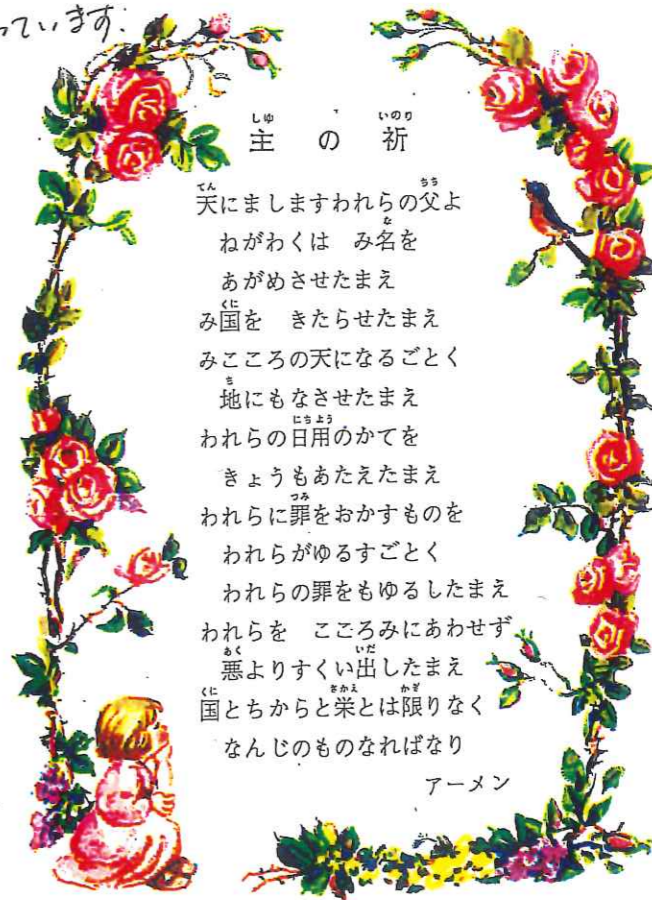 っています.
主の祈
天にましますわれらの父よ
ねがわくは　み名を
あがめさせたまえ
み国を　きたらせたまえ
みこころの天になるごとく
地にもなさせたまえ
われらの日用のかてを
きょうもあたえたまえ
われらに罪をおかすものを
われらがゆるすごとく
われらの罪をもゆるしたまえ
われらを　こころみにあわせず
悪よりすくい出したまえ
国とちからと栄とは限りなく
なんじのものなればなり
アーメン